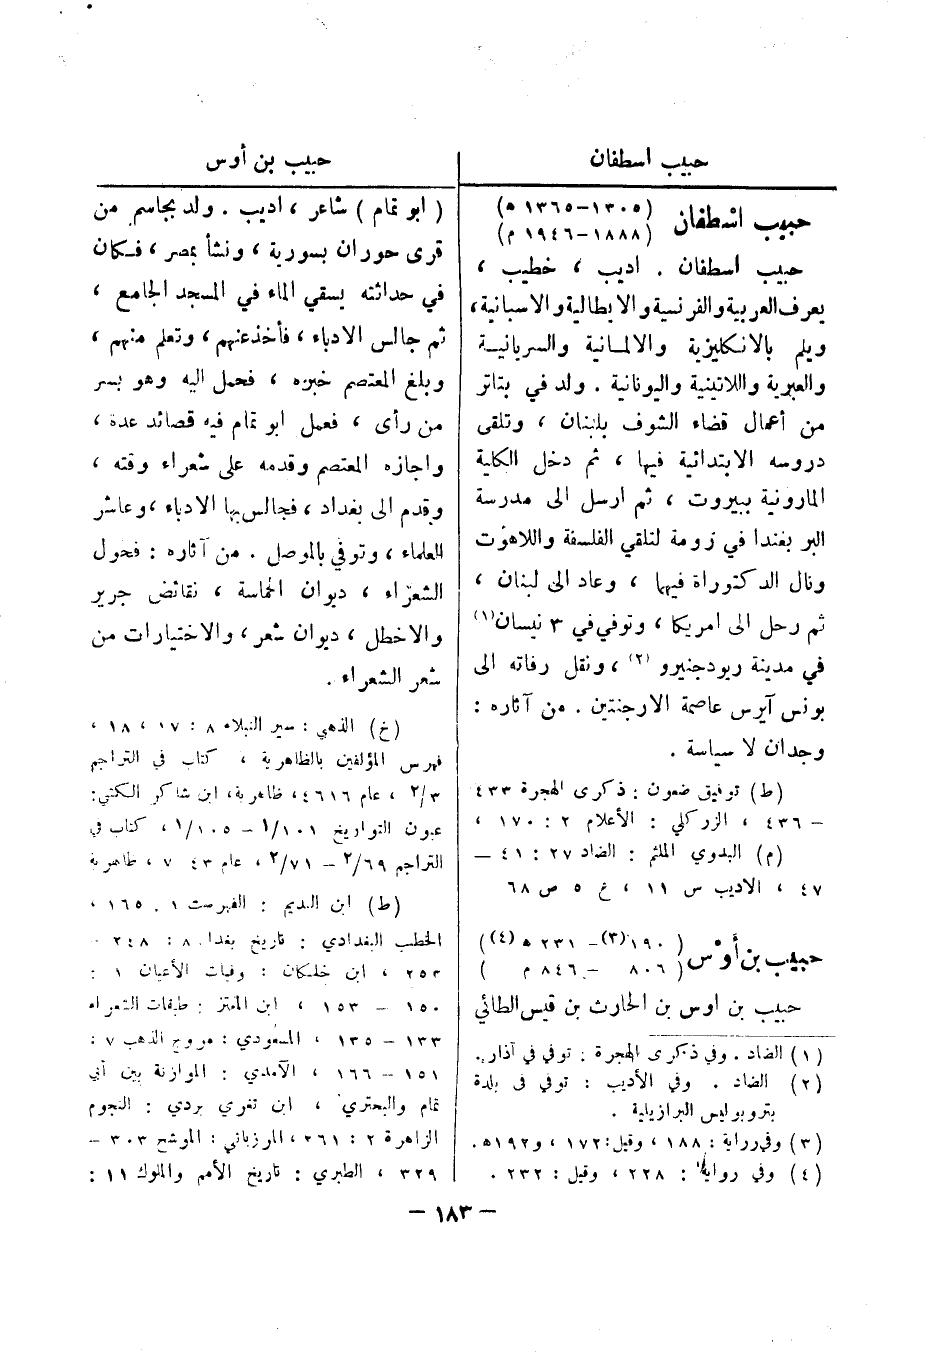 حبيب اسطفان
حبيب بن أوس
حبيب اسْطفان
(١٣٠٥-١٣٦٥ ه)
(١٨٨٨-١٩٤٦ م)
حبيب اسطفان . اديب ، خطيب ،
يعرف العربية والفرنسية والايطالية والاسبانية ،
ويلم بالانكليزية والالمانية والسريانيــة
والعبرية واللاتينية واليونانية . ولد في بتاتر
من أعمال قضاء الشوف بلبنان ، وتلقى
دروسه الابتدائية فيها ، ثم دخل الكلية
المارونية ببيروت ، ثم ارسل الى مدرسة
البربغندا في رومة لتلقي الفلسفة واللاهوت
ونال الدكتوراة فيها ، وعاد الى لبنان ،
ثم رحل الى امريكا ، وتوفي في ٣ نيسان(١)
في مدينة ريودجنيرو (٢) ، ونقل رفاته الى
بونس آيرس عاصمة الارجنتين . من آثاره :
وجدان لا سياسة .
(ط) توفيق ضعون : ذكرى الهجرة ٤٣٣
- ٤٣٦ ، الزركلي : الأعلام ٢ : ١٧٠ ،
(م) البدوي الملثم : الضاد ٢٧ : ٤١ -
٤٧ ، الاديب س ١١ ، ع ٥ ص ٦٨
حبيب بن أوْس
( ١٩٠(٣)- ٢٣١ ه(٤))
( ٨٠٦ - ٨٤٦ م )
حبيب بن اوس بن الحارث بن قيس الطائي
(١) الضاد . وفي ذكرى الهجرة : توفي في آذار .
(٢) الضاد . وفي الأديب : توفي في بلدة
بتروبوليس البرازيلية .
(٣) وفي رواية : ١٨٨ ، وقيل : ١٧٢ ، و١٩٢ه .
(٤) وفي رواية : ٢٢٨ ، وقيل : ٢٣٢ .
( ابو تمام ) شاعر ، اديب . ولد بجاسم من
قرى حوران بسورية ، ونشأ بمصر ، فكان
في حداثته يسقي الماء في المسجد الجامع ،
ثم جالس الادباء ، فأخذ عنهم ، وتعلم منهم ،
وبلغ المعتصم خبره ، فحمل اليه وهو بسر
من رأى ، فعمل ابو تمام فيه قصائد عدة ،
واجازه المعتصم وقدمه على شعراء وقته ،
وقدم الى بغداد ، فجالس بها الادباء ، وعاشر
العلماء ، وتوفي بالموصل . من آثاره : فحول
الشعراء ، ديوان الحماسة ، نقائض جرير
والاخطل ، ديوان شعر ، والاختيارات من
شعر الشعراء .
(خ) الذهبي : سير النبلاء ٨ : ١٧ ، ١٨ ،
فهرس المؤلفين بالظاهرية ، كتاب في التراجم
٢/٣ ، عام ٤٦١٦ ، ظاهرية ، ابن شاكر الكتبي :
عيون التواريخ ١/١٠١ - ١/١٠٥ ، كتاب في
التراجم ٢/٦٩ - ٢/٧١ ، عام ٤٣ ٧ ، ظاهرية
(ط) ابن النديم : الفهرست ١ . ١٦٥ ،
الخطب البغدادي : تاريخ بغداد ٨ : ٢٤٨ -
٢٥٣ ، ابن خلكان : وفيات الأعيان ١ :
١٥٠ - ١٥٣ ، ابن المعتز : طبقات الشعراء
١٣٣ - ١٣٥ ، المسعودي : مروج الذهب ٧ :
١٥١ - ١٦٦ ، الآمدي : الموازنة بين أبي
تمام والبحتري ، ابن تغري بردي : النجوم
الزاهرة ٢ : ٢٦١ ، المرزباني : الموشح ٣٠٣ -
٣٢٩ ، الطبري : تاريخ الأمم والملوك ١١ :
- ١٨٣ -